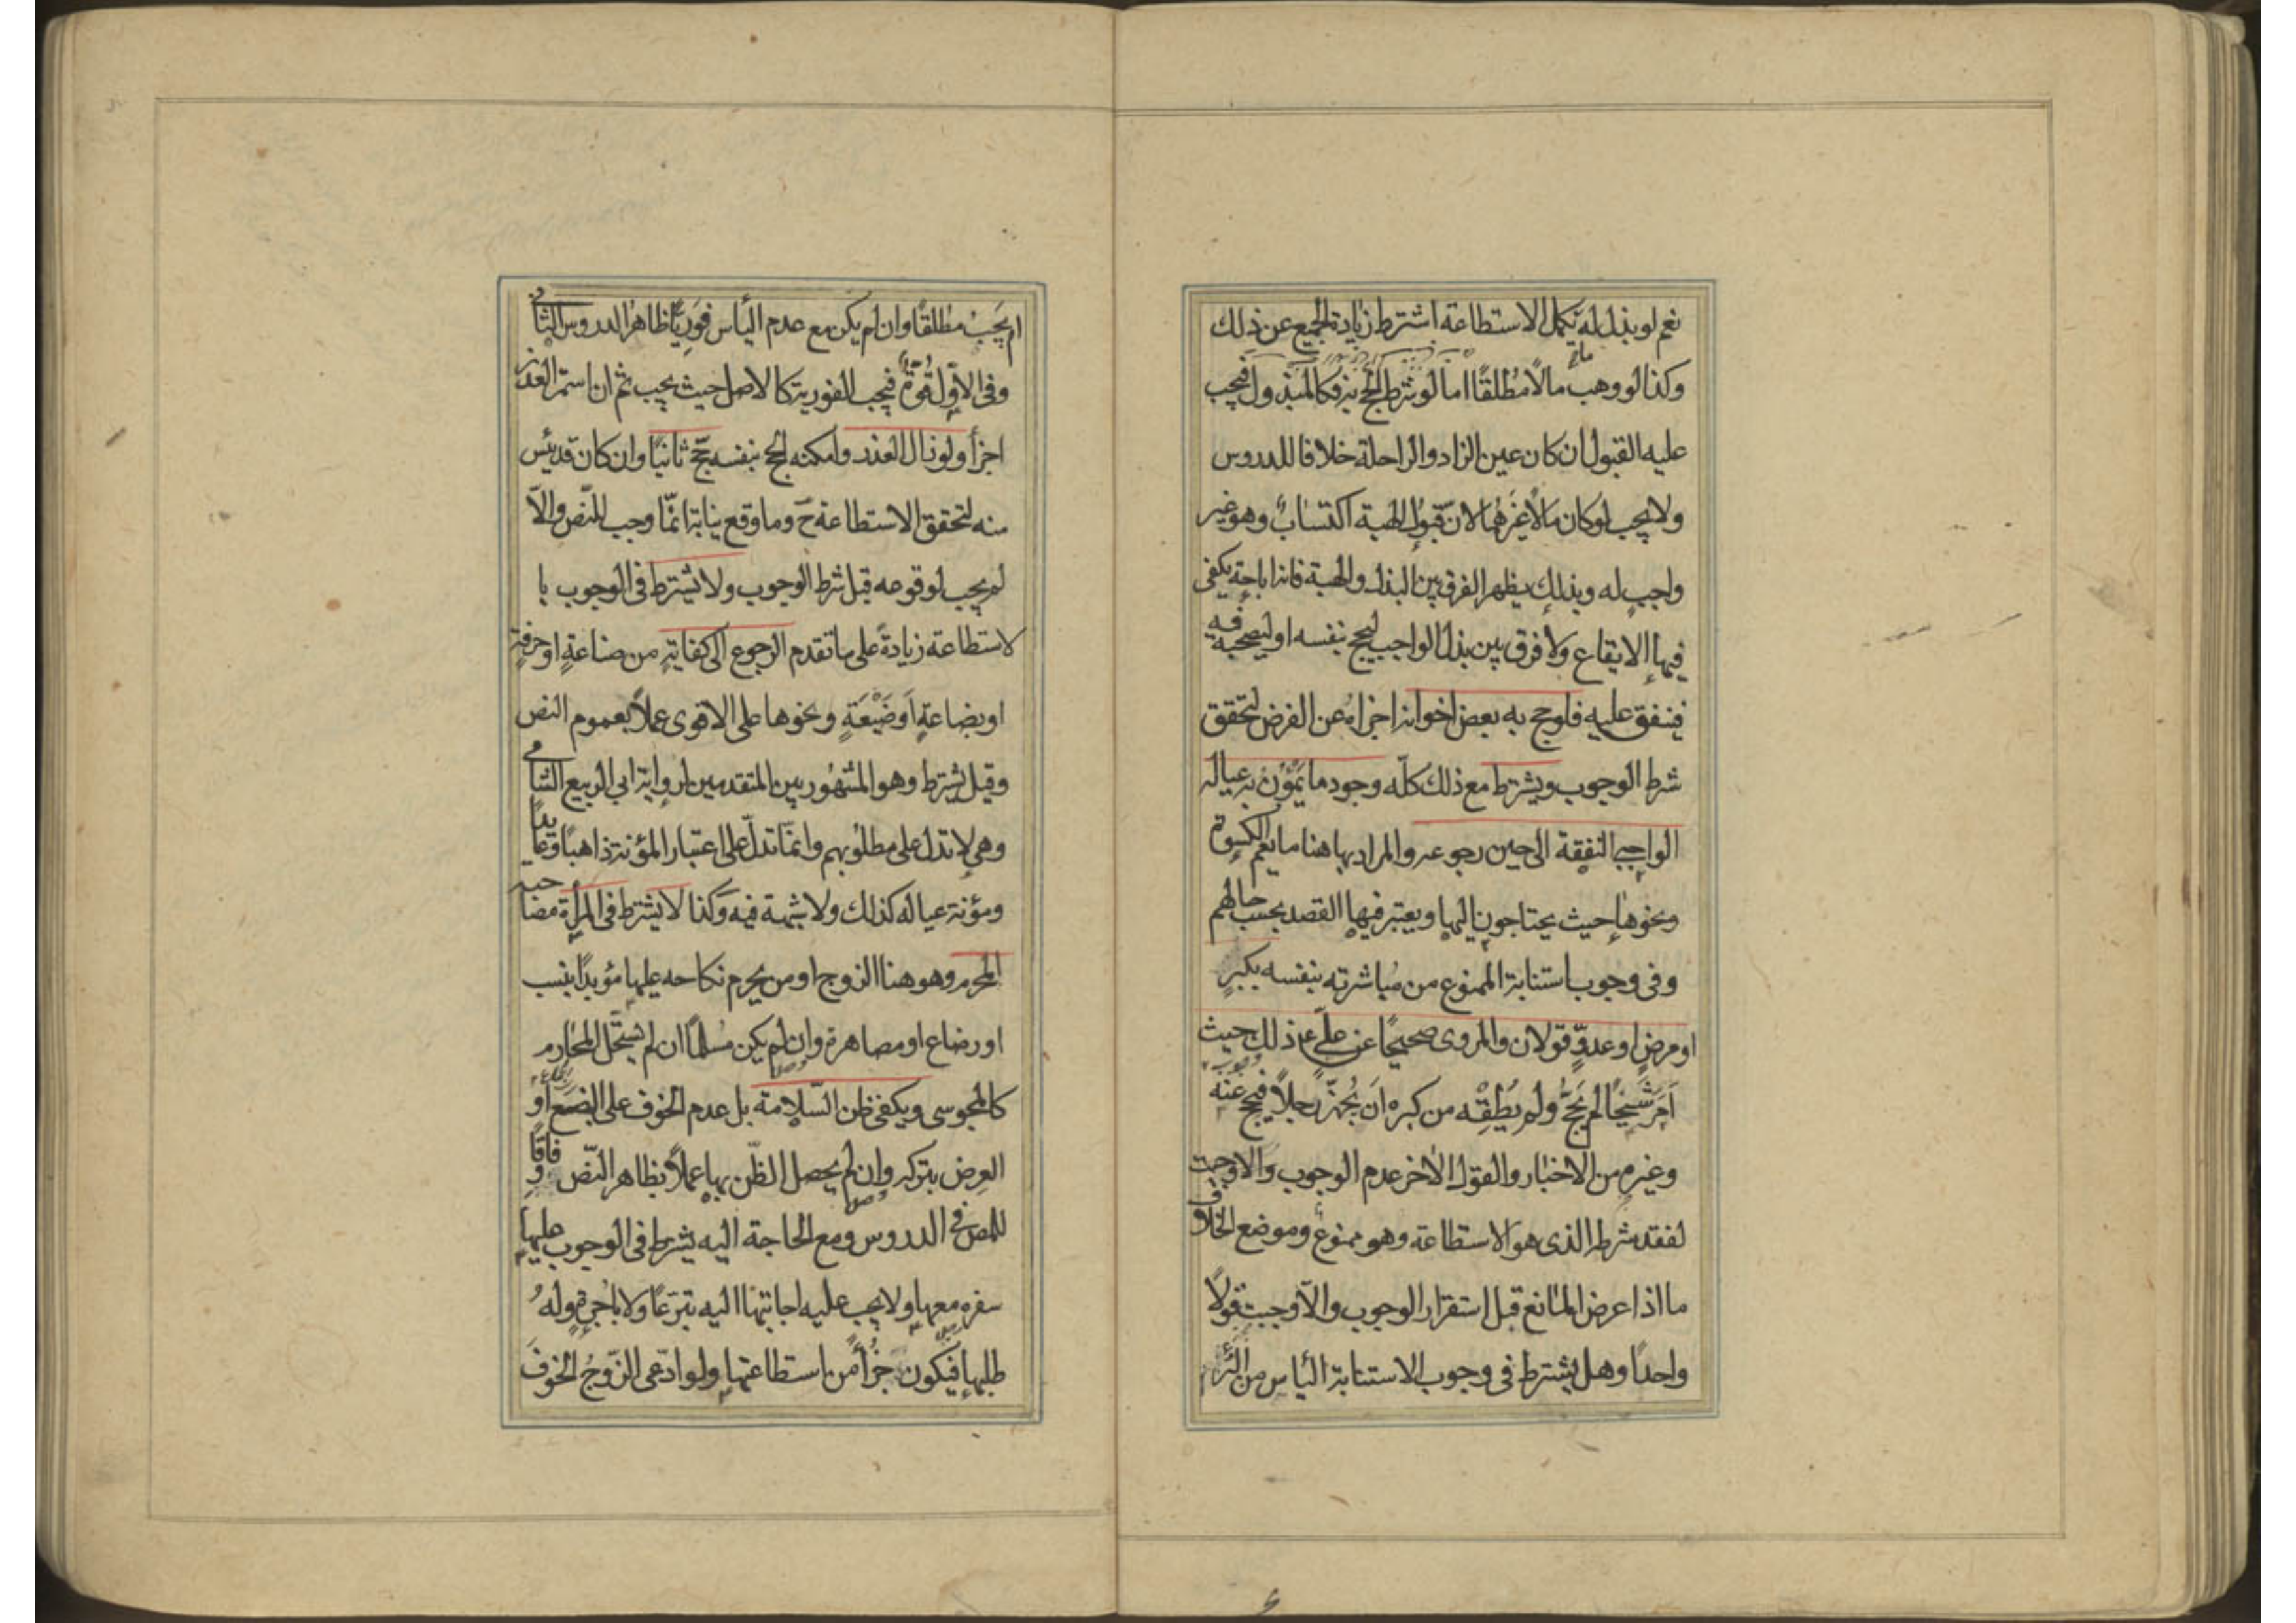 نعم لو بذل له ما يكمل الاستطاعة اشترط زيادة الجميع عن ذلك
وكذا لو وهب مالا مطلقًا اما لو شرط الحج به فكالمبذول فيجب
عليه القبول ان كان عين الزاد والراحلة خلافا للدروس
ولا يجب لو كان مالًا غيرهما لانّ قبول الهبة اكتسابٌ وهو غير
واجبٍ له وبذلك يظهر الفرق بين البذل والهبة فانه اباحة يكفى
فيها الايقاع ولا فرق بين بذل الواجب ليحج بنفسه او ليصحبه فيه
فينفق عليه فلو حج به بعض اخوانه اجزاه عن الفرض لتحقق
شرط الوجوب ويشترط مع ذلك كلّه وجود ما يَمُوْن به عياله
الواجبى النفقة الى حين رجوعه والمراد بها هنا ما يعم الكسوة
ونحوها حيث يحتاجون اليها ويعتبر فيها القصد بحسب حالهم
وفى وجوب استنابة الممنوع من مباشرته بنفسه بكبرٍ
او مرضٍ او عدوٍّ قولان والمروى صحيحًا عن علىّ ع ذلك حيث
اَمَرَ شَيخًا لم يَحُجَّ ولم يُطِقْه من كبره اَن يُجهّز رجلًا فيحج عنه
وغيره من الاخبار والقول الاخر عدم الوجوب والا وجبت
لفقد شرطه الذى هو الاستطاعة وهو ممنوع وموضع الخلاف
ما اذا عرض المانع قبل استقرار الوجوب والّا وجبت قولًا
واحدًا وهل يشترط فى وجوب الاستنابة الياس من البرء
ام يَجِبُ مطلقًا وان لم يكن مع عدم اليأس فوريًّا ظاهر الدروس الثانى
وفى الاوّل قُوّةٌ فيجب الفورية كالاصل حيث يجب ثم ان استمر العذر
اجزأ ولو زال العذر وامكنه الحج بنفسه حجّ ثانيًا وان كان قد يئس
منه لتحقق الاستطاعة ح وما وقع نيابة انّما وجب للنّص والّا
لم يجب لوقوعه قبل شرط الوجوب ولا يشترط فى الوجوب با
لاستطاعة زيادةً على ما تقدم الرجوع الى كفايةٍ من صناعةٍ او حرفةٍ
او بضاعةٍ اَو ضَيْعَةٍ ونحوها على الاقوى عملًا بعموم النص
وقيل يشترط وهو المشهور بين المتقدمين لرواية ابى الربيع الشامى
وهى لا تدل على مطلوبهم وانمّا تدلّ على اعتبار المؤنة ذاهبًا وعايدًا
ومؤنة عياله كذلك ولا شبهة فيه وكذا لا يشترط فى المرأة مصاحبة
المحرم وهو هنا الزوج او من يحرم نكاحه عليها مؤبدًا بنسب
او رضاع او مصاهرة وان لم يكن مُسلمًا ان لم يستحّل المحارم
كالمجوسى ويكفى ظن السّلامة بل عدم الخوف على البضع او
العِرض بتركه وان لم يحصل الظّن بها عملًا بظاهر النّص وِفاقًا
للمص فى الدروس ومع الحاجة اليه يشترط فى الوجوب عليها
سفره معها ولا يجب عليه اجابتها اليه تبرّعًا ولا باُجرةٍ وله
طلبها فيكون جُزأً من استطاعتها ولو ادعى الزّوجُ الخوفَ